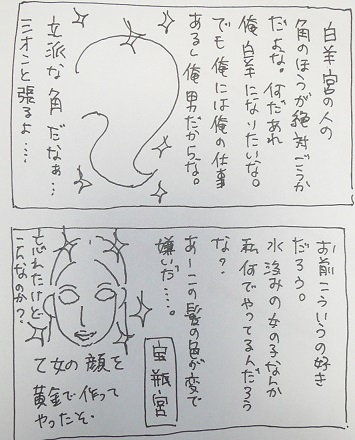 白羊宮の人の
角のほうが絶対ごうか
だよな。何だあれ
俺白羊になりたいな。
でも俺には俺の仕事
あるし俺男だからな。
立派な角だなぁ…
と張るよ……
お前こういうの好き
だろう。
水汲みの女の子なんか
私何でやってるんだろう
な?
あーこの髪の色が変で
嫌いだ…。
宝瓶宮
乙女の顔を
黄金で作って
やったぞ。
忘れたけど
こんなのか?